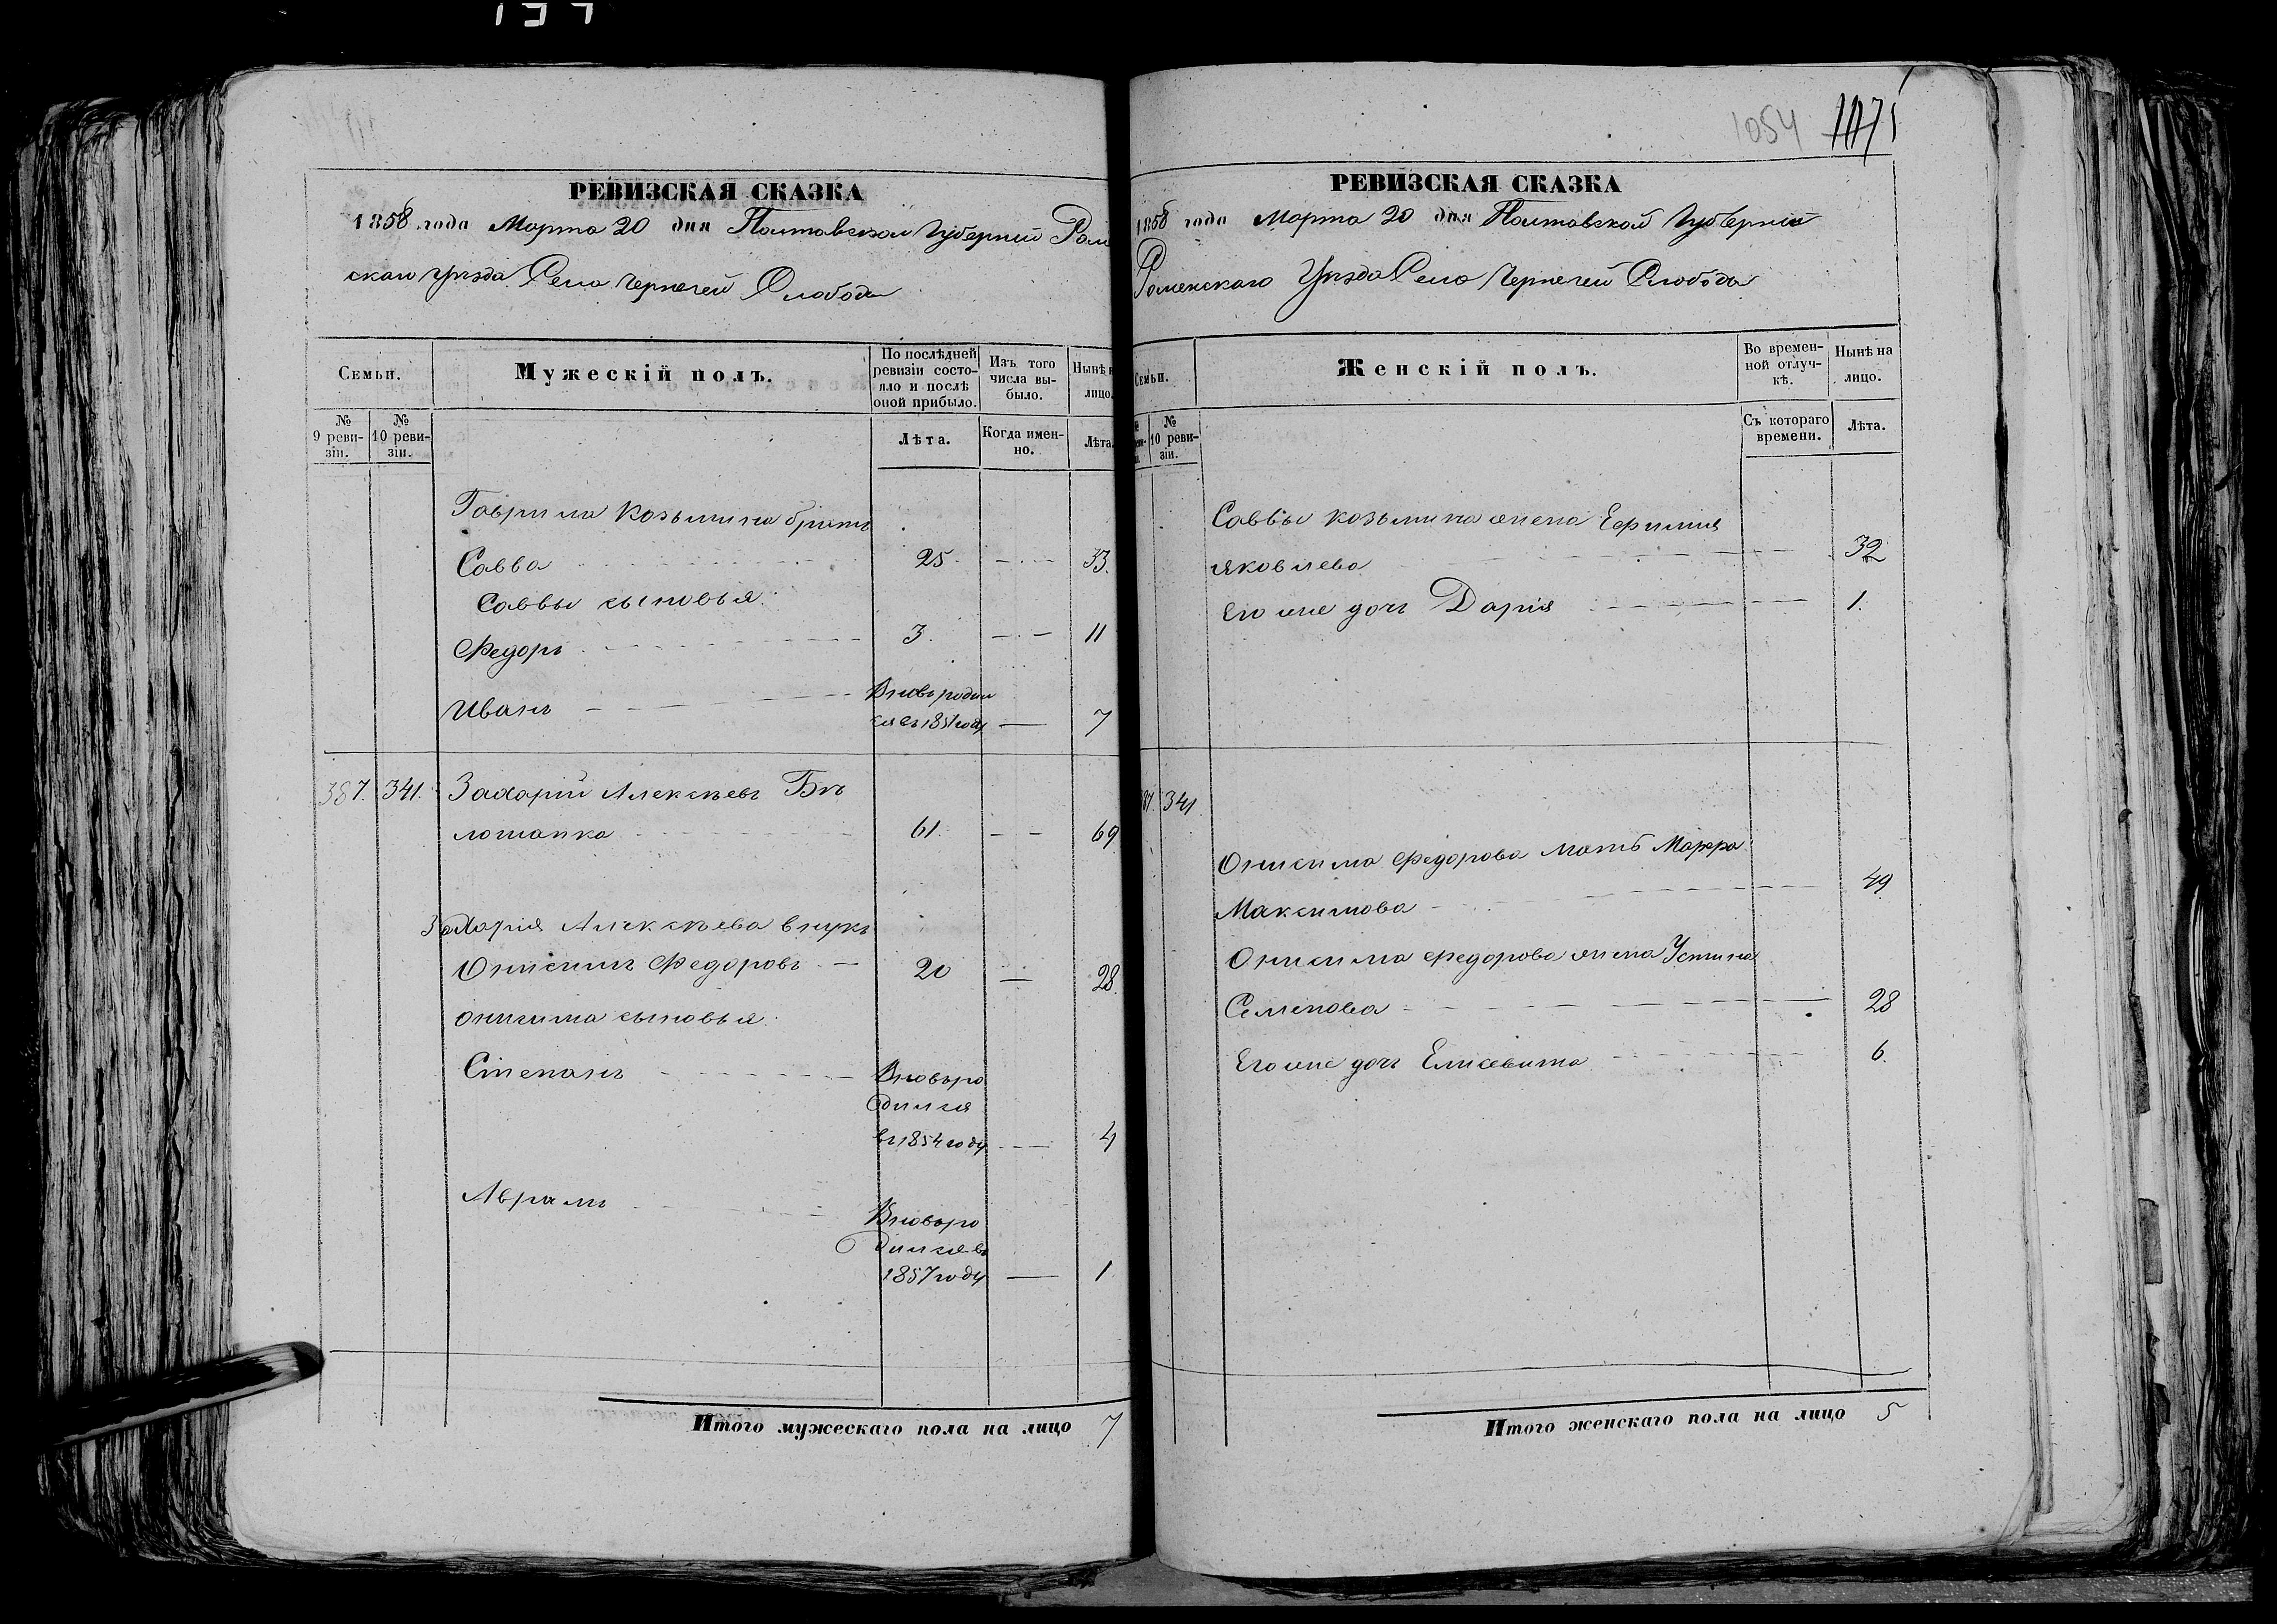 1054 1175
РЕВИЗСКАЯ СКАЗКА
1858 года Марта 20 дня Полтавской Губерніи Ром
скаго Уѣзда Села Чернечей Слободы
Семьи.
Мужескій полъ.
По послѣдней ревизіи состояло и послѣ оной прибыло.
Изъ того числа выбыло.
Нынѣ н лицо.
№ 9 ревизіи.
№ 10 ревизіи.
Лѣта.
Когда именно.
Лѣта.
Гаврила Козьмина братъ
Савва 25 33.
Саввы сыновья:
Федоръ 3. 11
Иванъ Вновь родил
ся въ 1851 году 7
387. 341. Захарій Алексѣевъ Бѣ
лошапка 61. 69
Захарія Алексѣева внукъ
Онисимъ Федоровъ 20 28.
Онисима сыновья:
Степанъ Вновь ро
дился
въ 1854 году 4
Аврамъ Вновь ро
дился въ
1857 году 1
Итого мужескаго пола на лицо 7
РЕВИЗСКАЯ СКАЗКА
1858 года Марта 20 дня Полтавской Губерніи
Роменскаго Уѣзда Села Чернечей Слободы
Семьи.
Женскій полъ.
Во временной отлучкѣ.
Нынѣ на лицо.
№ 10 ревизіи.
Съ котораго времени.
Лѣта.
Саввы Козьмина жена Ефимія
Яковлева 32
Его же дочь Дарія 1.
87. 341
Онисима Федорова мать Марфа
Максимова 49
Онисима Федорова жена Устина
Семенова 28
Его же дочь Елисавета 6.
Итого женскаго пола на лицо 5